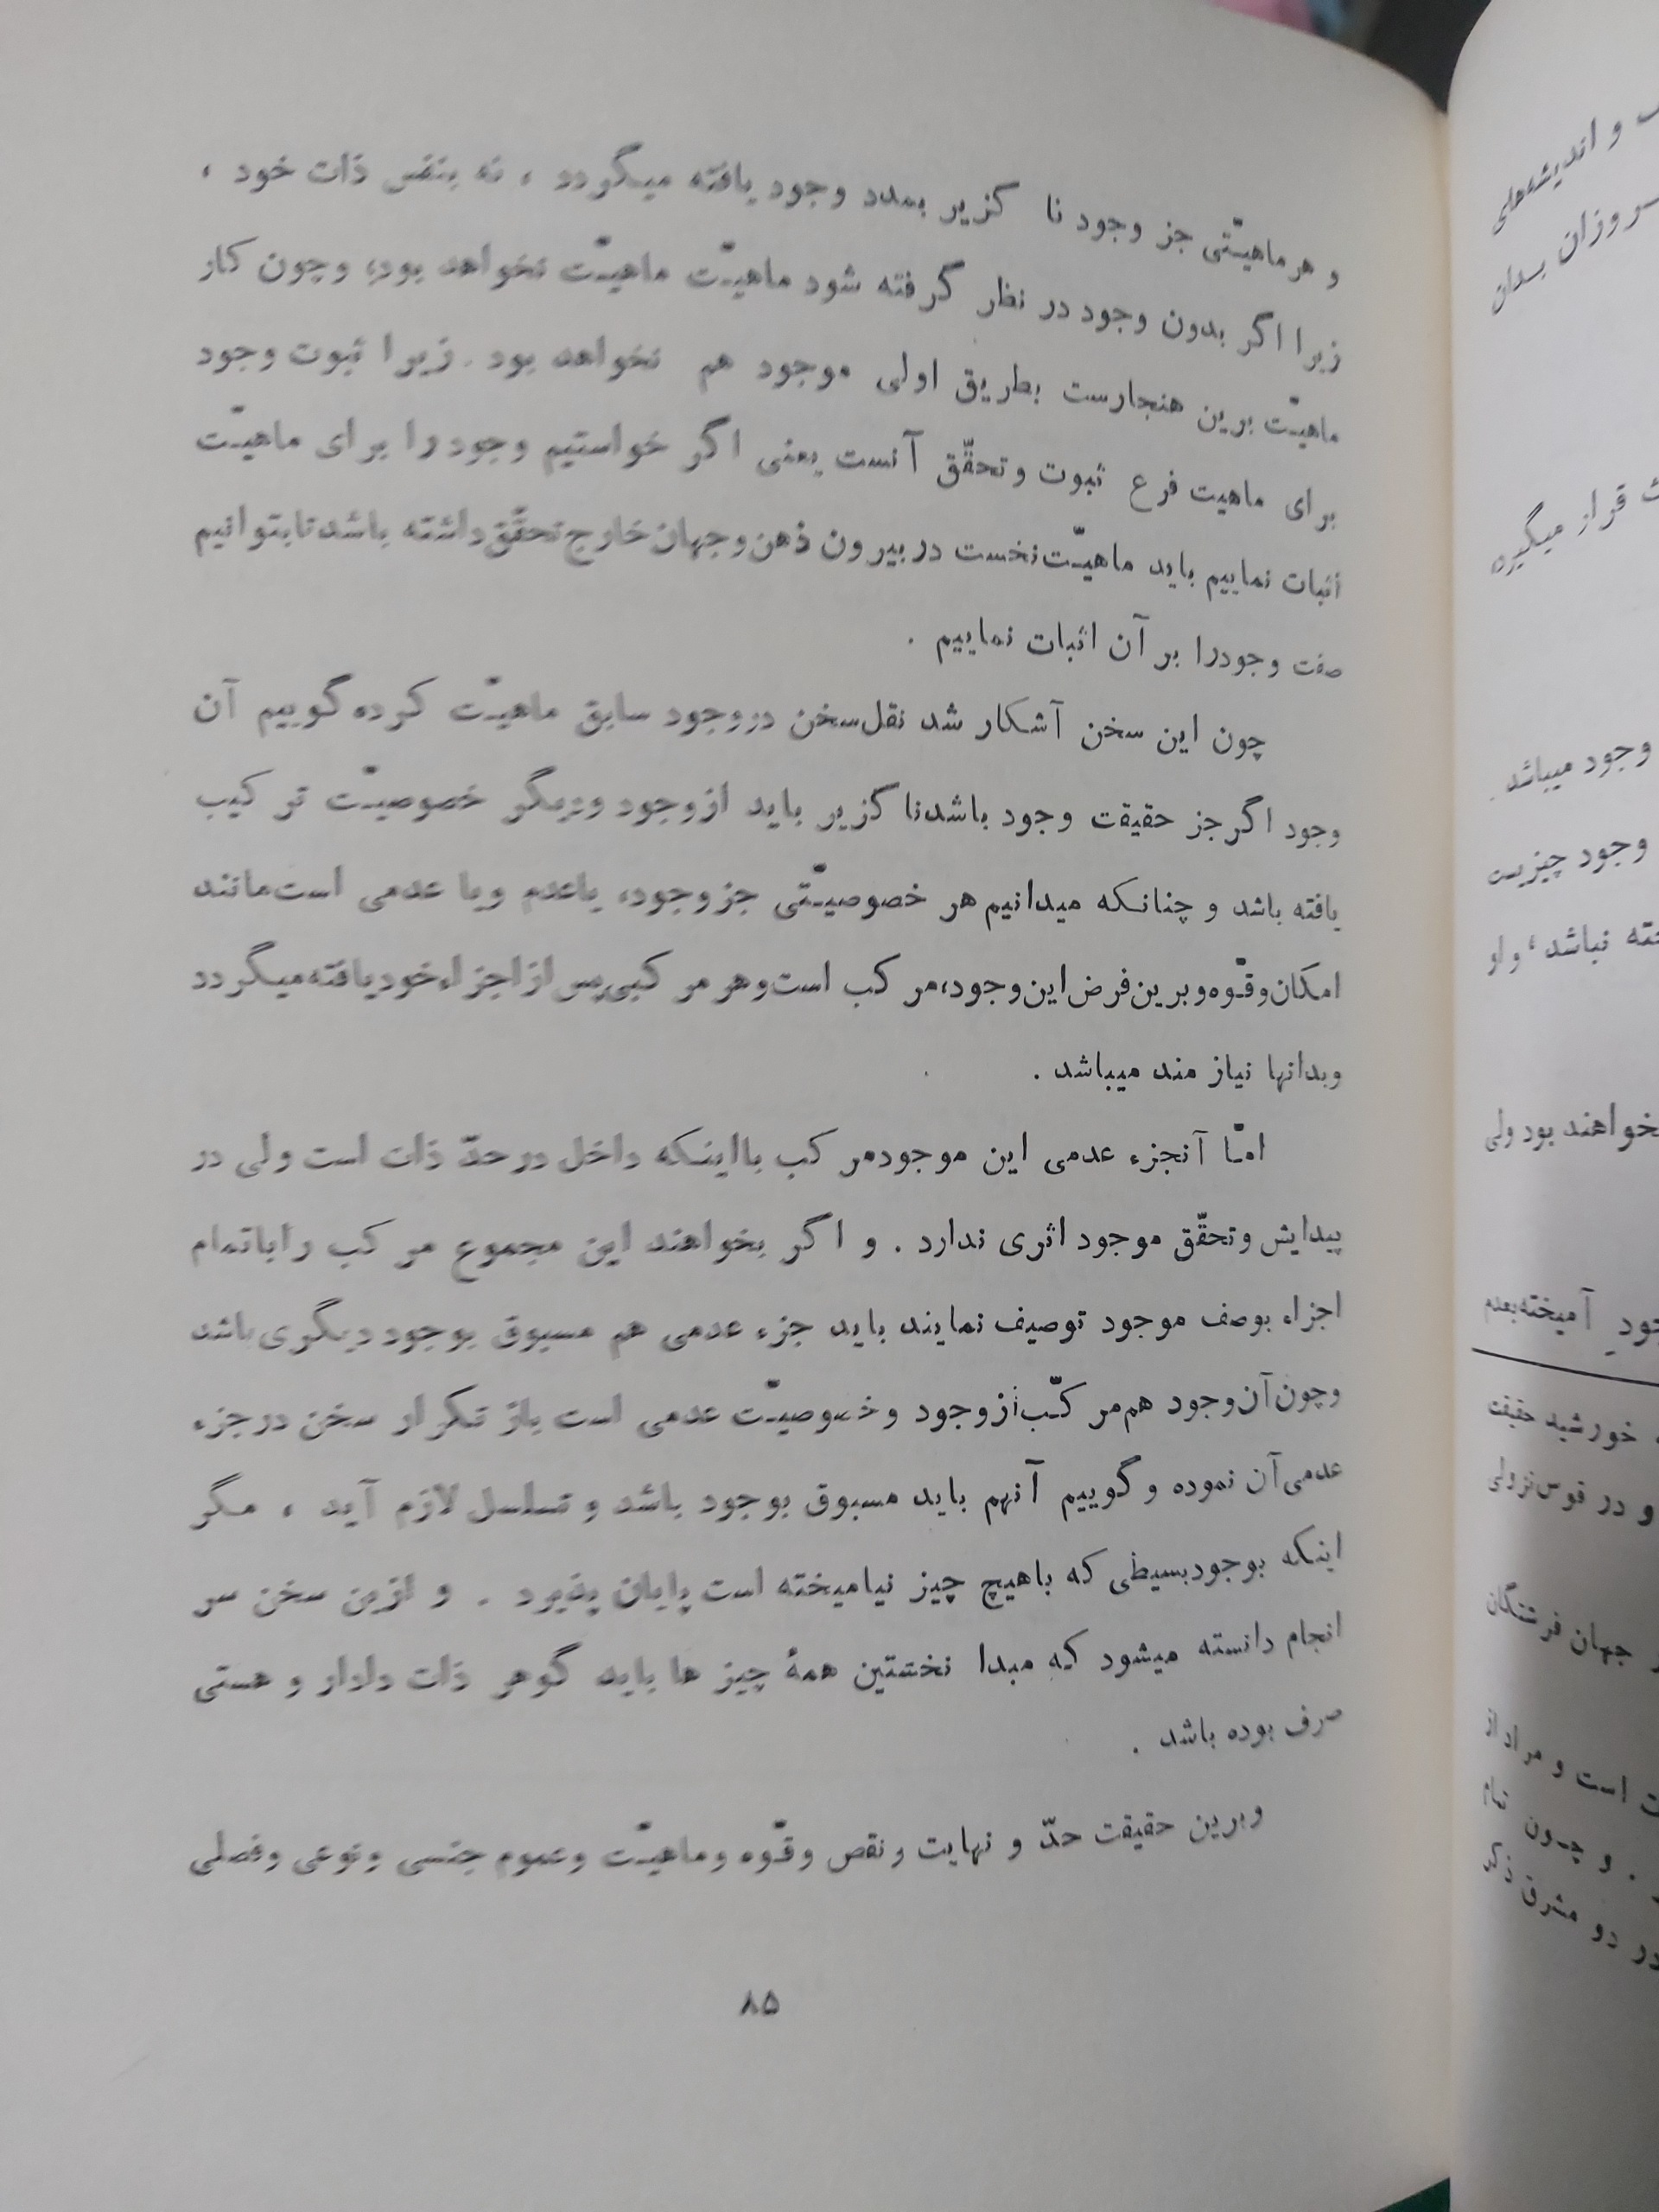 و هر ماهیّتی جز وجود نا گزیر بمدد وجود یافته میگردد ، نه بنفس ذات خود ،
زیرا اگر بدون وجود در نظر گرفته شود ماهیّت ماهیّت نخواهد بود، و چون کار
ماهیّت برین هنجارست بطریق اولی موجود هم نخواهد بود . زیرا ثبوت وجود
برای ماهیت فرع ثبوت و تحقّق آنست یعنی اگر خواستیم وجود را برای ماهیّت
اثبات نماییم باید ماهیّت نخست در بیرون ذهن و جهان خارج تحقّق داشته باشد تا بتوانیم
صفت وجود را بر آن اثبات نماییم .
چون این سخن آشکار شد نقل سخن در وجود سابق ماهیّت کرده گوییم آن
وجود اگر جز حقیقت وجود باشد نا گزیر باید از وجود و دیگر خصوصیّت تر کیب
یافته باشد و چنانکه میدانیم هر خصوصیّتی جز وجود، یا عدم و یا عدمی است مانند
امکان و قوّه و برین فرض این وجود، مر کب است و هر مر کبی پس از اجزاء خود یافته میگردد
و بدانها نیاز مند میباشد .
امّا آنجزء عدمی این موجود مر کب با اینکه داخل در حدّ ذات است ولی در
پیدایش و تحقّق موجود اثری ندارد . و اگر بخواهند این مجموع مر کب را با تمام
اجزاء بوصف موجود توصیف نمایند باید جزء عدمی هم مسبوق بوجود دیگری باشد
و چون آن وجود هم مر کّب از وجود و خصوصیّت عدمی است باز تکرار سخن در جزء
عدمی آن نموده و گوییم آنهم باید مسبوق بوجود باشد و تسلسل لازم آید ، مگر
اینکه بوجود بسیطی که با هیچ چیز نیامیخته است پایان پذیرد . و ازین سخن سر
انجام دانسته میشود که مبدا نخستین همهٔ چیز ها باید گوهر ذات دادار و هستی
صرف بوده باشد .
و برین حقیقت حدّ و نهایت و نقص و قوّه و ماهیّت و عموم جنسی و نوعی و فصلی
۸۵
و اندیشه‌های
روزان بدان
قرار میگیرد
وجود میباشد .
وجود چیزیست
نباشد ، و او
نخواهند بود ولی
آمیخته بعدم
خورشید حقیقت
و در قوس نزولی
جهان فرشتگان
است و مراد از
. و چون تمام
در دو مشرق ذکر